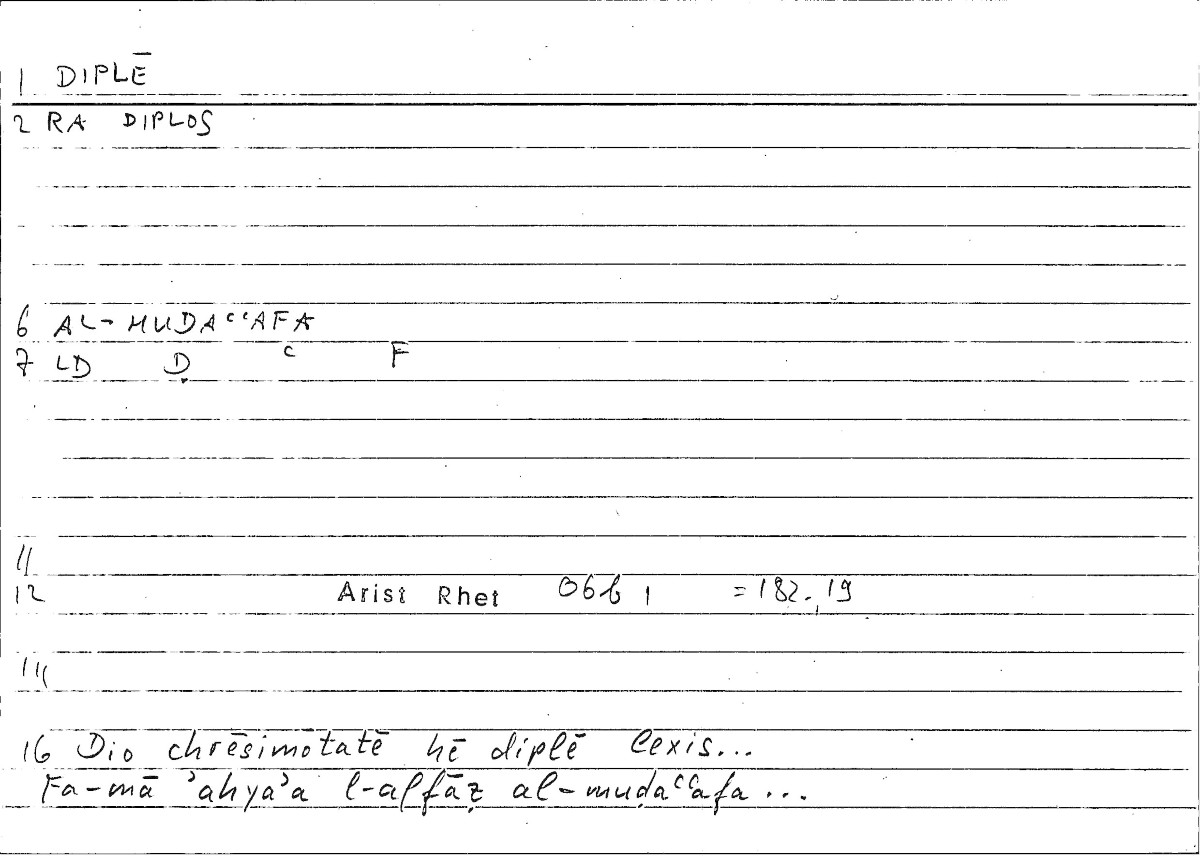 1 DIPLĒ
2 RA DIPLOS
6 AL-MUDAʿʿAFA
7 LD Ḍ ʿ F
11
12 Arist Rhet 06b 1 =182.,19
14
16 Dio chrēsimōtatē hē diplē lexis...
Fa-mā ʾahyaʾa l-alfāẓ al-muḍaʿʿafa ...